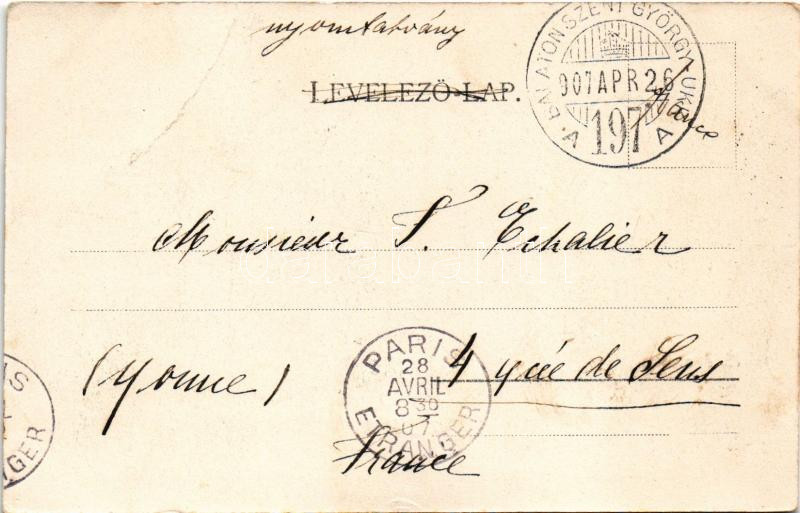 nyomtatvány
LEVELEZŐ-LAP.
BALATONSZENTGYÖRGY-UKK
907 APR 26
197
A A
France
Monsieur S. Echalier
PARIS
28
AVRIL
8 30
07
ETRANGER
4 de Sens
(Yonne)
France
IS
GER